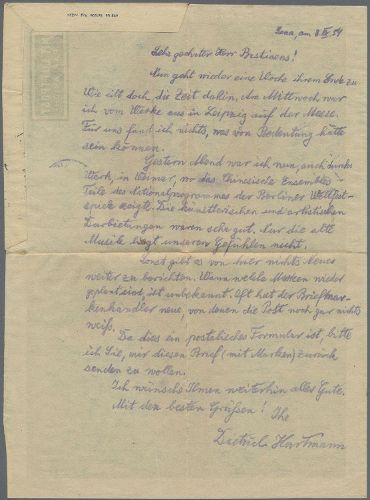 Jena, am 8. IX. 51
Sehr geehrter Herr Bastiaens!
Nun geht wieder eine Woche ihrem Ende zu
Wie eilt doch die Zeit dahin. Am Mittwoch war
ich vom Werke aus in Leipzig auf der Messe.
Für uns fand ich nichts, was von Bedeutung hätte
sein können.
Gestern Abend war ich nun, auch durchs
Werk, in Weimar, wo das Chinesische Ensemble
Teile des Nationalprogrammes der Berliner Weltfest-
spiele zeigte. Die künstlerischen und artistischen
Darbietungen waren sehr gut. Nur die alte
Musik liegt unseren Gefühlen nicht.
Sonst gibt es von hier nichts Neues
weiter zu berichten. Wann welche Marken wieder
geplant sind, ist unbekannt. Oft hat der Briefmar-
kenhändler neue, von denen die Post noch gar nichts
weiß.
Da dies ein postalisches Formular ist, bitte
ich Sie, mir diesen Brief (mit Marken) zurück
senden zu wollen.
Ich wünsche Ihnen weiterhin alles Gute.
Mit den besten Grüßen! Ihr
Dietrich Hartmann